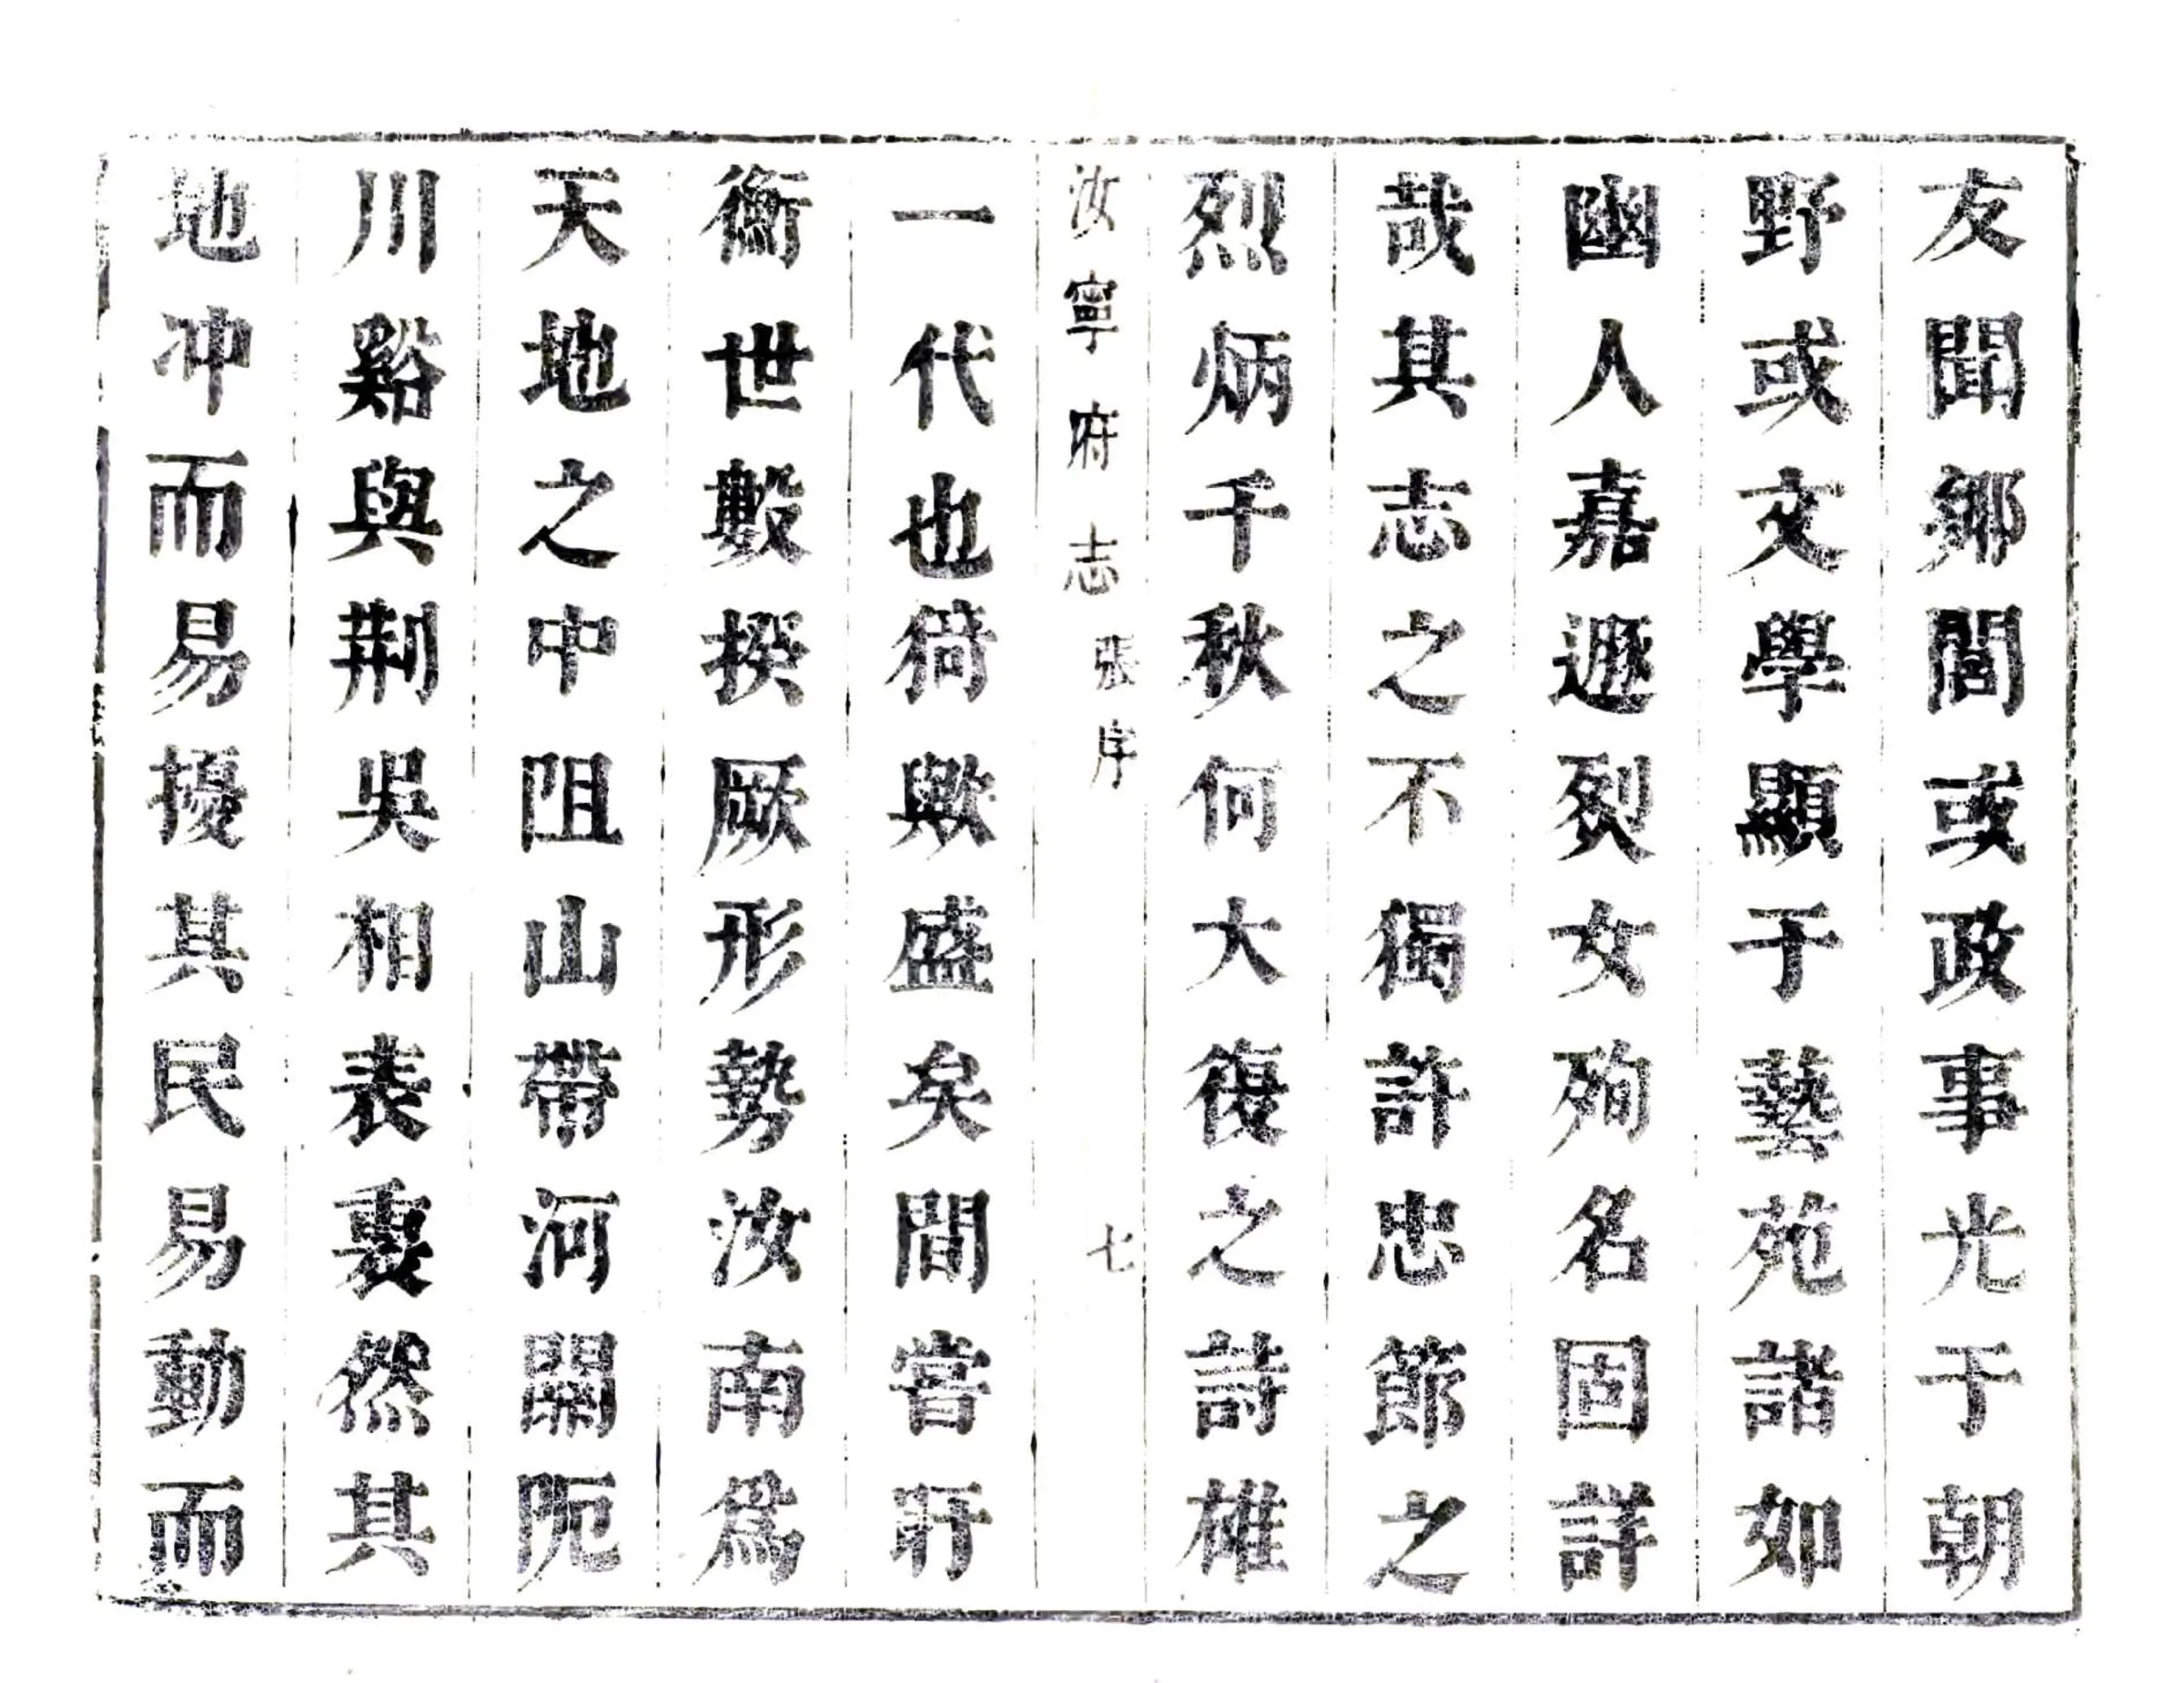 友聞鄉閭或政事光于朝
野或文學顯于藝苑諸如
幽人嘉遯烈女殉名固詳
哉其志之不獨許忠節之
烈炳千秋何大復之詩雄
汝寧府志 張序 七
一代也猗歟盛矣間嘗盱
衡世數揆厥形勢汝南爲
天地之中阻山帶河關阨
川谿與荆吳相表裏然其
地冲而易擾其民易動而